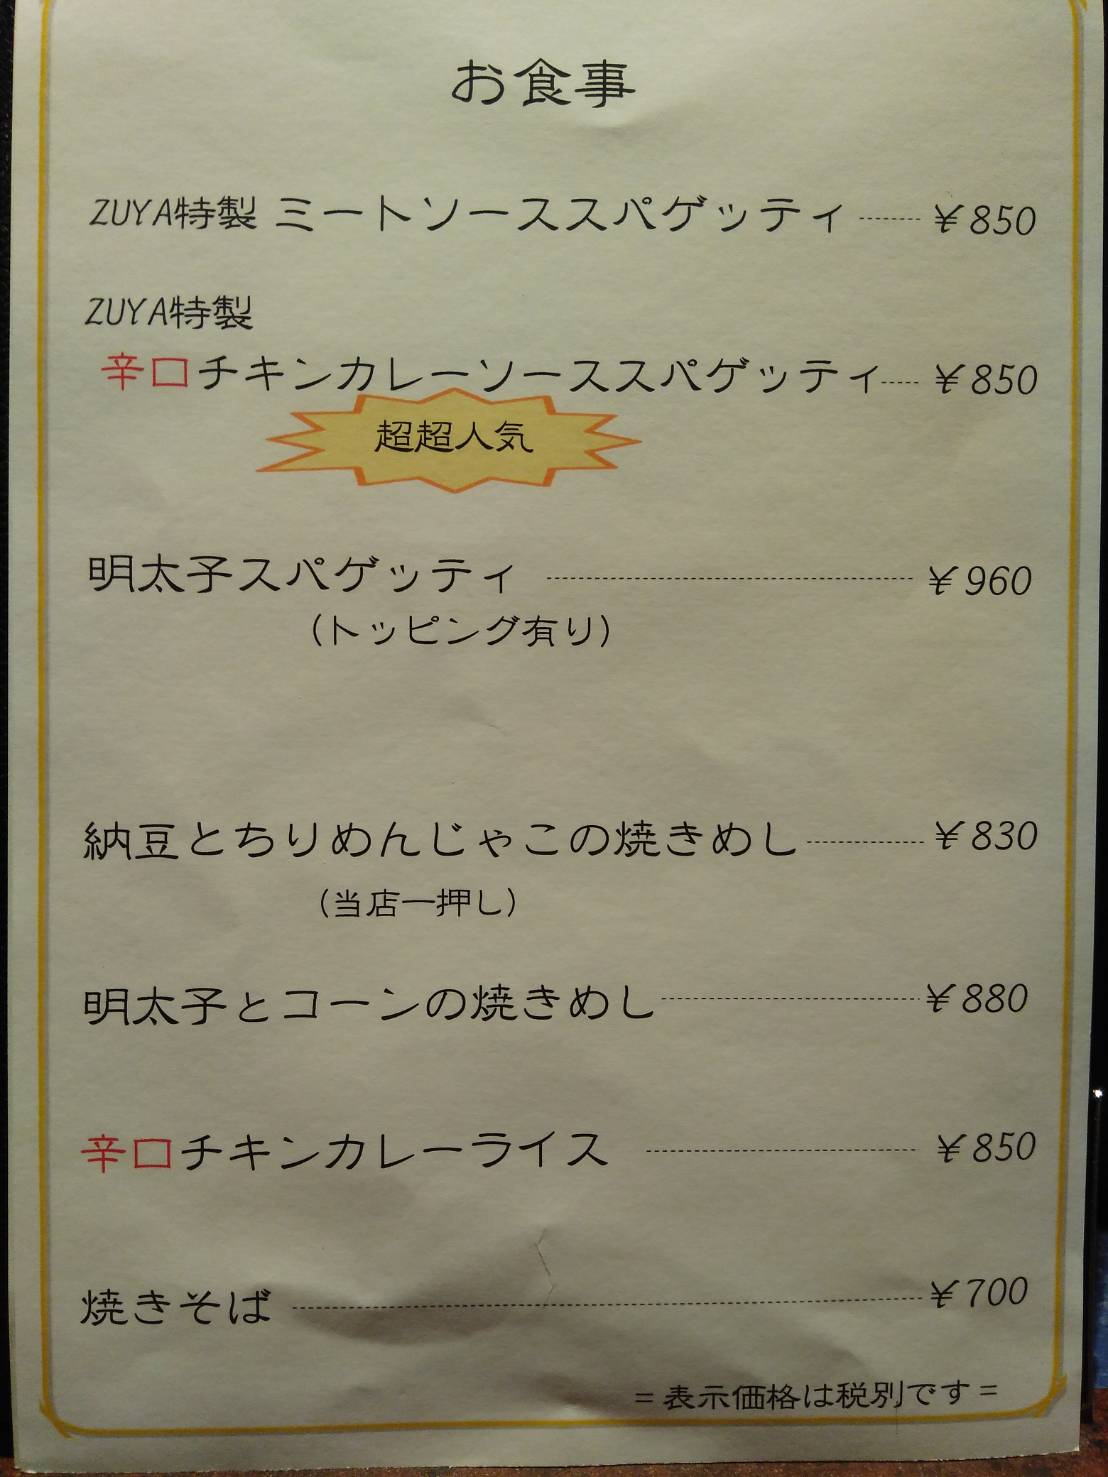 お食事
ZUYA特製 ミートソーススパゲッティ ¥850
ZUYA特製
辛口チキンカレーソーススパゲッティ ¥850
超超人気
明太子スパゲッティ ¥960
(トッピング有り)
納豆とちりめんじゃこの焼きめし ¥830
(当店一押し)
明太子とコーンの焼きめし ¥880
辛口チキンカレーライス ¥850
焼きそば ¥700
=表示価格は税別です=